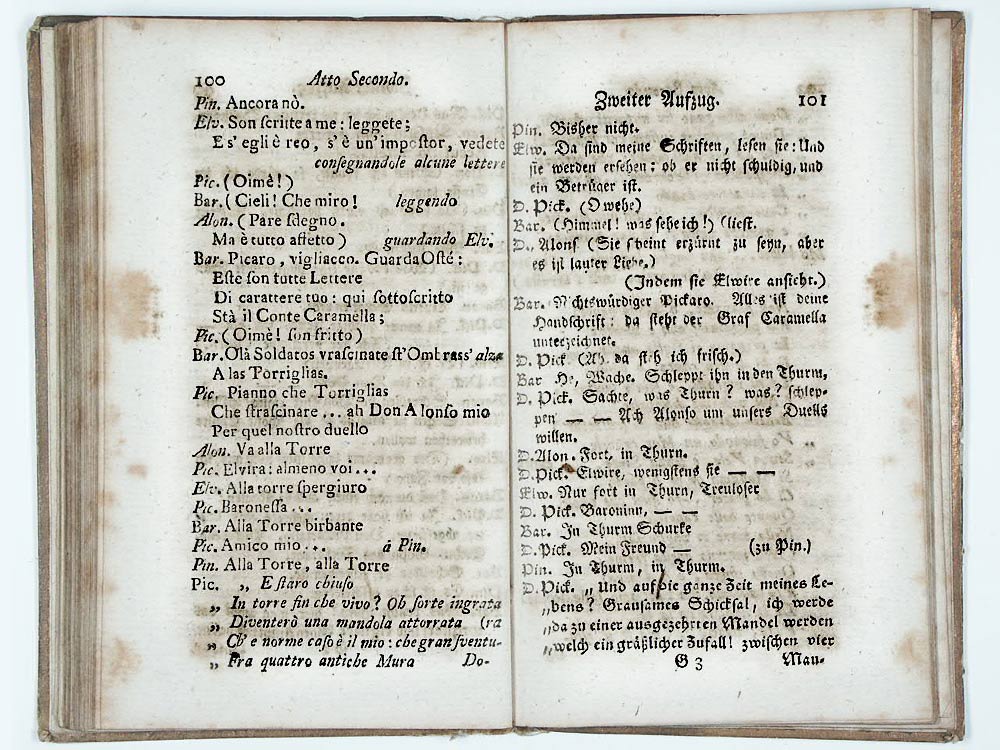 100 Atto Secondo.
Pin. Ancora nò.
Elv. Son ſcritte a me: leggete;
E s' egli è reo, s' è un' impoſtor, vedete
conſegnandole alcune lettere
Pic. (Oimè!)
Bar. (Cieli! Che miro! leggendo
Alon. (Pare ſdegno.
Ma è tutto affetto) guardando Elv.
Bar. Picaro, vigliacco. Guarda Oſtè:
Eſte ſon tutte Lettere
Di carattere tuo: qui ſottoſcritto
Stà il Conte Caramella;
Pic. (Oimè! ſon fritto)
Bar. Olà Soldatos vraſcinate ſt' Ombraſs' alza
A las Torriglias.
Pic. Pianno che Torriglias
Che ſtraſcinare... ah Don Alonſo mio
Per quel noſtro duello
Alon. Va alla Torre
Pic. Elvira: almeno voi...
Elv. Alla torre ſpergiuro
Pic. Baroneſſa...
Bar. Alla Torre birbante
Pic. Amico mio... à Pin.
Pin. Alla Torre, alla Torre
Pic. „ E ſtaro chiuſo
„ In torre fin che vivo? Oh ſorte ingrata
„ Diventerò una mandola attorrata (ra
„ Ch' e norme caſo è il mio: che gran ſventu-
„ Fra quattro antiche Mura Do-
Zweiter Aufzug. 101
Pin. Bisher nicht.
Elw. Da ſind meine Schriften, leſen ſie: Und
ſie werden erſehen; ob er nicht ſchuldig, und
ein Betrüger iſt.
D. Pick. (O wehe)
Bar. (Himmel! was ſehe ich!) (lieſt.
D. Alonſ (Sie ſcheint erzürnt zu ſeyn, aber
es iſt lauter Liebe.)
(Indem ſie Elwire anſicht.)
Bar. Nichtswürdiger Pickaro. Alles iſt deine
Handſchrift: da ſteht der Graf Caramella
unterzeichnet.
D. Pick. (Ah da ſteh ich friſch.)
Bar He, Wache. Schleppt ihn in den Thurm,
D. Pick. Sachte, was Thurn? was? ſchlep-
pen — — Ach Alonſo um unſers Duells
willen.
D. Alon. Fort, in Thurn.
D. Pick. Elwire, wenigſtens ſie — —
Elw. Nur fort in Thurn, Treuloſer
D. Pick. Baroninn, — —
Bar. In Thurm Schurke
D. Pick. Mein Freund — (zu Pin.)
Pin. In Thurm, in Thurm.
D. Pick. „ Und auf die ganze Zeit meines Le-
„ bens? Grauſames Schickſal, ich werde
„ da zu einer ausgezehrten Mandel werden
„ welch ein gräßlicher Zufall! zwiſchen vier
G 3 Mau-